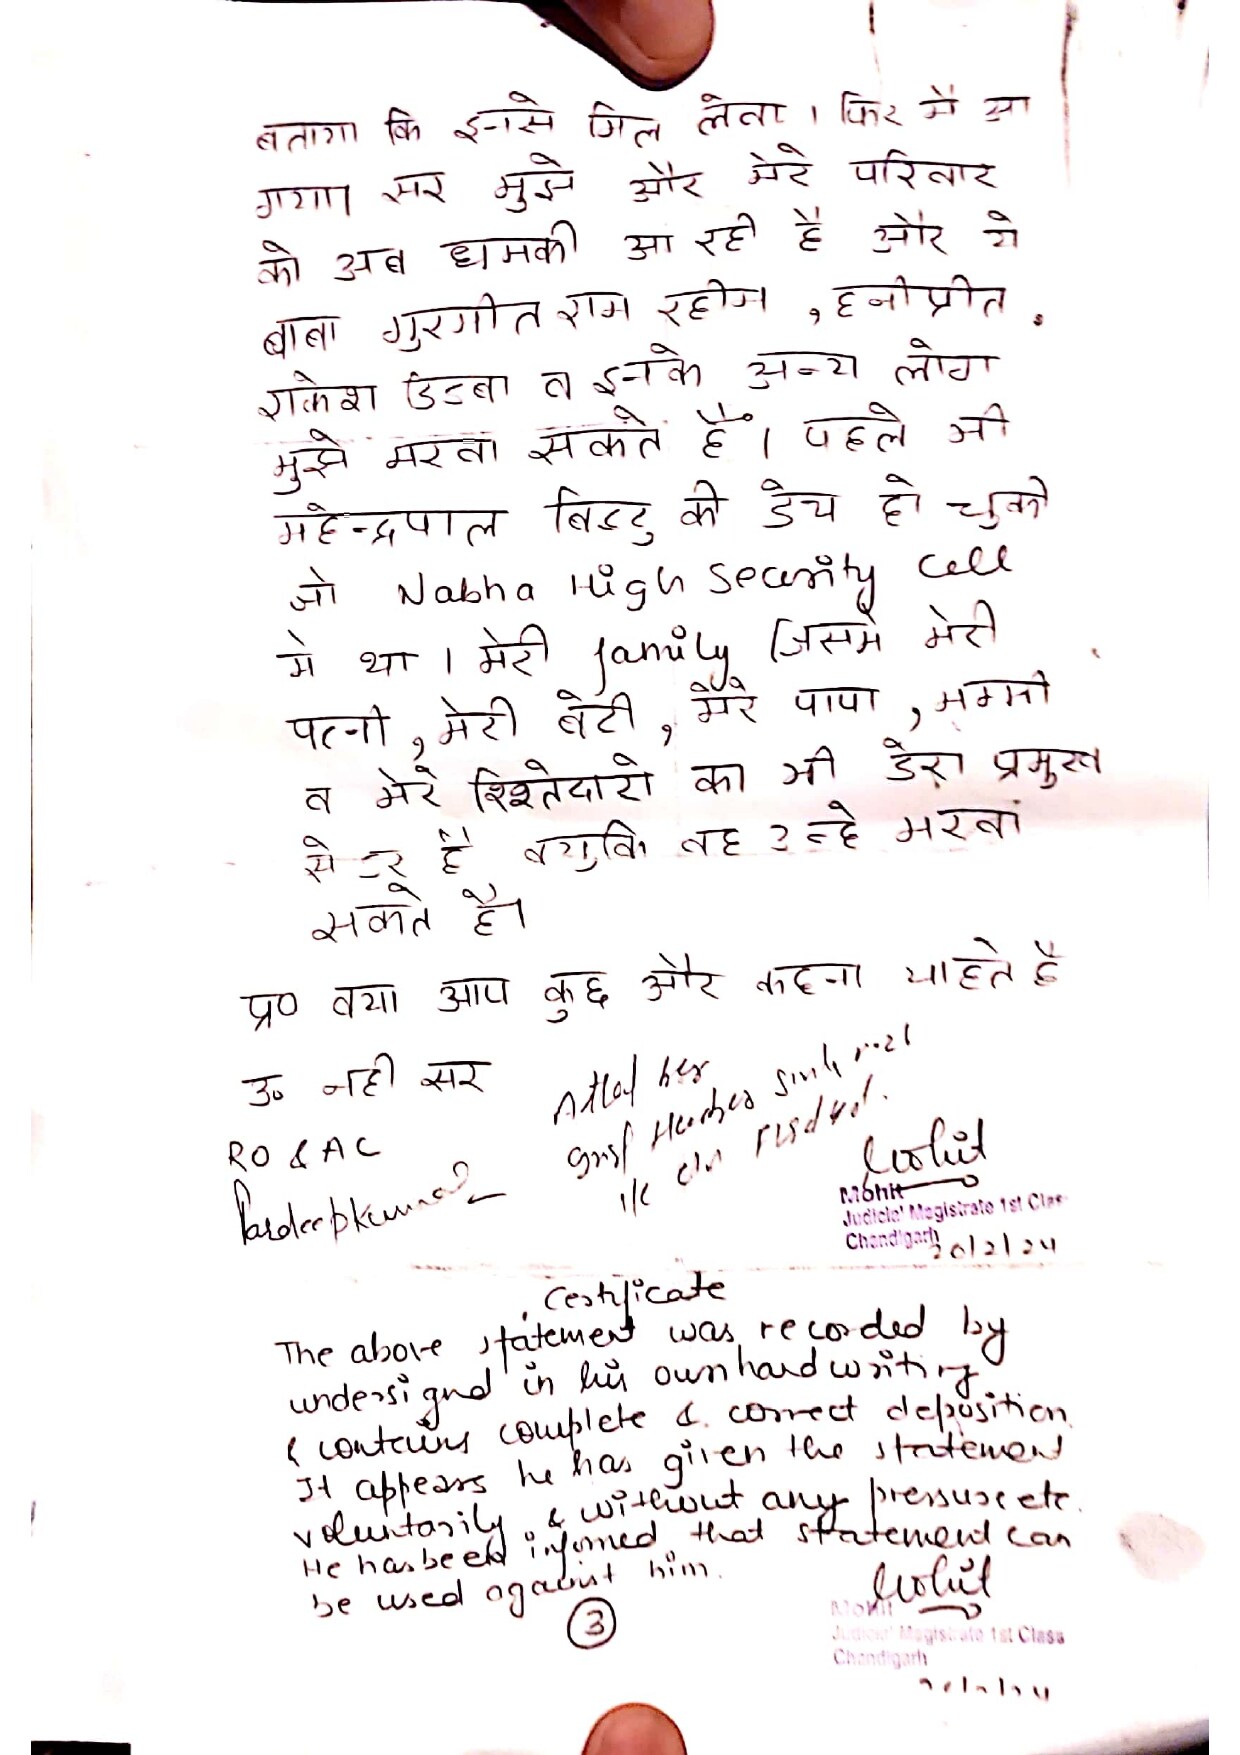 बताया कि इनसे मिल लेना। फिर मैं आ
गया। सर मुझे और मेरे परिवार
को अब धमकी आ रही है और ये
बाबा गुरमीत राम रहीम, हनीप्रीत,
राकेश डिडबा व इनके अन्य लोग
मुझे मरवा सकते हैं। पहले भी
महेन्द्रपाल बिट्टु की डेथ हो चुकी
जो Nabha High Security Cell
मे था। मेरी family जिसमे मेरी
पत्नी, मेरी बेटी, मेरे पापा, मम्मी
व मेरे रिश्तेदारो का भी डेरा प्रमुख
से डर है क्युकि वह उन्हे मरवा
सकते है।
प्र० क्या आप कुछ और कहना चाहते है
उ० नही सर
RO & AC
Pardeep kumar
Mohit
Judicial Magistrate 1st Class
Chandigarh
20/2/24
Certificate
The above statement was recorded by
undersigned in his own handwriting
& contains complete & correct deposition
It appears he has given the statement
voluntarily & without any pressure etc.
He has been informed that statement can
be used against him.
3
Mohit
Judicial Magistrate 1st Class
Chandigarh